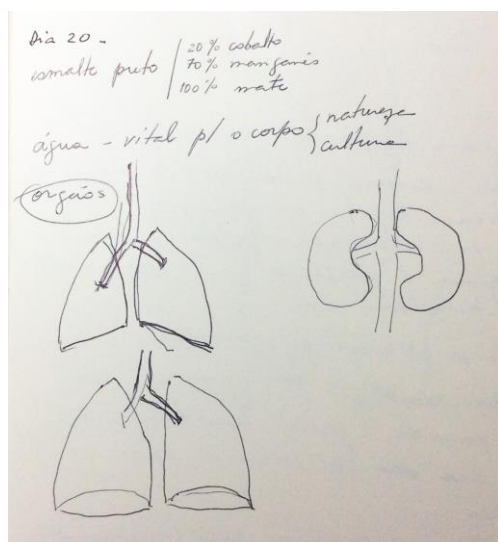 Dia 20 -
esmalte preto / 20% cobalto
70% manganês
100% mate
água - vital p/ o corpo { natureza
cultura
orgãos